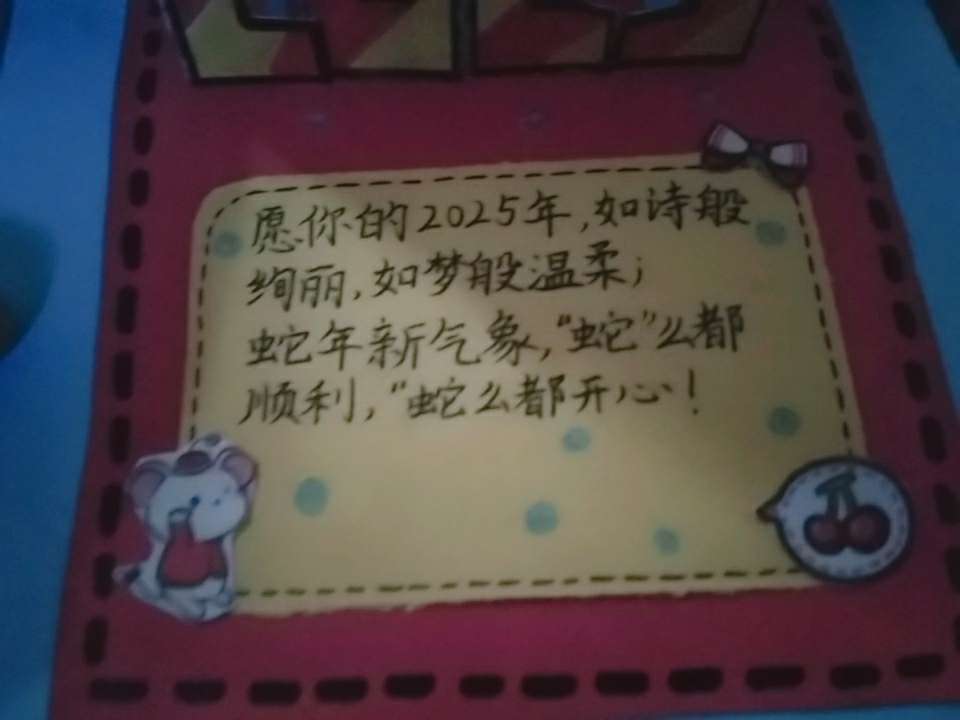 愿你的2025年,如诗般
绚丽,如梦般温柔;
蛇年新气象,"蛇"么都
顺利,"蛇么都开心!